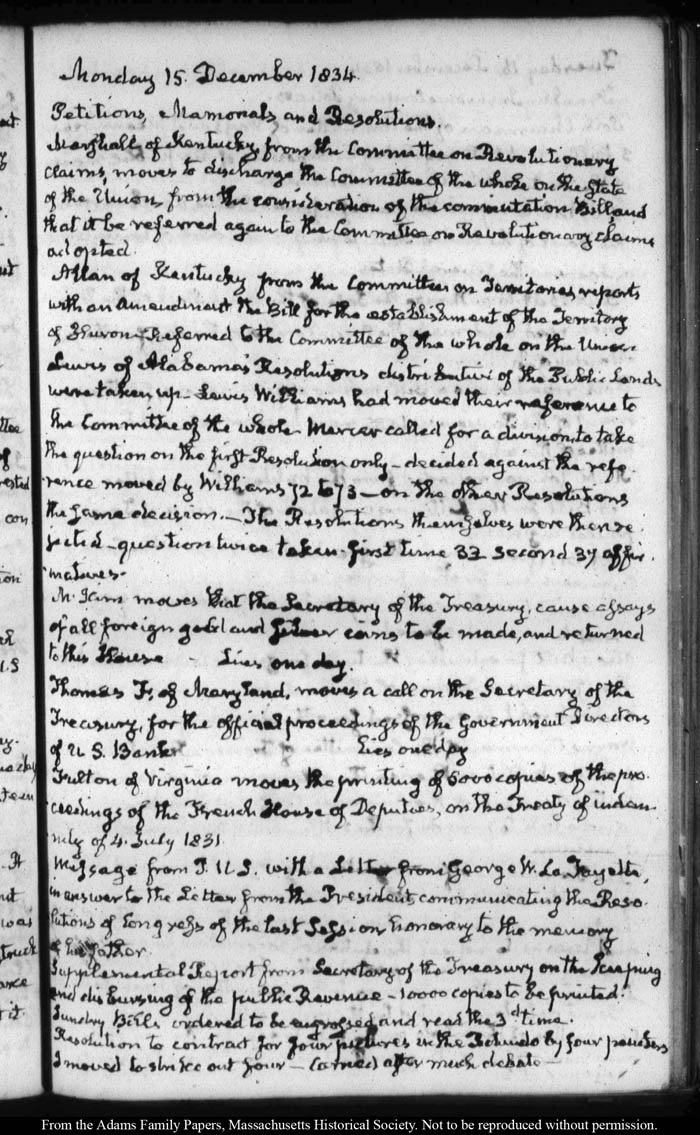 Monday 15. December 1834.
Petitions, Memorials and Resolutions.
Marshall of Kentucky from the Committee on Revolutionary
claims, moves to discharge the Committee of the whole on the State
of the Union, from the consideration of the commutation Bill, and
that it be referred again to the Committee on Revolutionary claims
adopted.
Allan of Kentucky from the Committee on Territories, reports
with an Amendment the Bill for the establishment of the Territory
of Huron. Referred to the Committee of the whole on the Union
Lewis of Alabama's Resolutions distributive of the Public Lands
were taken up. Lewis Williams had moved their reference to
the Committee of the whole. Mercer called for a division, to take
the question on the first Resolution only – decided against the refe-
rence moved by Williams 72 to 73 – on the other Resolutions
the same decision. – The Resolutions themselves were then re-
jected – question twice taken. first time 33 second 37 affir-
matives.
Mr. moves that the Secretary of the Treasury, cause assays
of all foreign gold and Silver coins to be made, and returned
to this House – Lies one day.
Thomas F. of Maryland, moves a call on the Secretary of the
Treasury, for the official proceedings of the Government Directors
of U S. Bank Lies one day
Fulton of Virginia moves the printing of 5000 copies of the pro-
ceedings of the French House of Deputies, on the Treaty of indem-
nity of 4. July 1831.
Message from P. U.S. with a Letter from George W. La Fayette,
in answer to the Letter from the President communicating the Reso-
lutions of Congress of the last Session honorary to the memory
of his father.
Supplemental Report from Secretary of the Treasury on the keeping
and disbursing of the public Revenue – 10000 copies to be printed.
Sundry Bills ordered to be engrossed and read the 3d time.
Resolution to contract for four pictures in the Rotundo by four painters
I moved to strike out four – Carried after much debate –
From the Adams Family Papers, Massachusetts Historical Society. Not to be reproduced without permission.